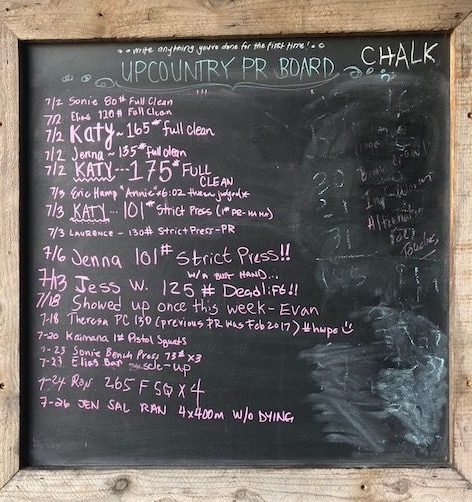 write anything you've done for the first time!
CHALK
UPCOUNTRY PR BOARD
7/2 Sonie 80# Full Clean
7/2 Elias 120# Full Clean
7/2 Katy ~ 165# full clean
7/2 Jenna ~ 135# full clean
7/2 KATY --- 175# FULL
CLEAN
7/3 Eric Hamp "Annie" 6:02
7/3 KATY... 101# Strict Press (1# PR- HA HA)
7/3 LAURENCE - 130# Strict Press - PR
7/6 Jenna 101# Strict Press!!
W/A BUST HAND...
7/13 Jess W. 125# Deadlift!!
7/18 Showed up once this week - Evan
7-18 Theresa PC 130 (previous PR was Feb 2017) #hwpo
7-20 Kaimana 1st Pistol Squats
7-23 Sonie Bench Press 73# x3
7-23 Elias Bar muscle-up
7-24 Ron 265 F SQ x 4
7-26 JEN SAL RAN 4x400m W/O DYING
30
31
Alternating
Toe
Touches